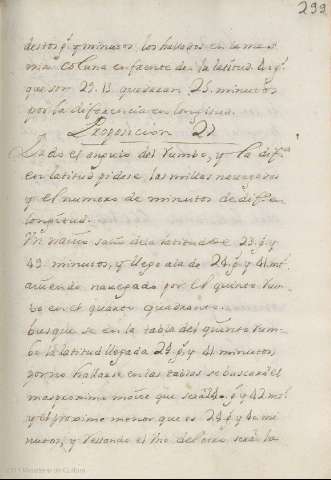 299
destos gs. y minutos los hallados en la mes
ma coluna enfrente de la latitud
que son 29.13 quedaran 25. minutos
por la diferencia en longitud.
Proposicion 21
Dado el angulo del Rumbo, y la difa.
en latitud pidese, las millas navegadas
y el numero de minutos de difa. en
longitud.
Un navio salio de la latitud de 23. gs. y
49. minutos, y llego a la de 24. gs. y 41. ms.
aviendo navegado por el quinto Rum-
bo en el quarto quadrante.
busque se en la tabla del quinto Rum-
bo la latitud llegada 24. gs. y 41 minutos,
por no hallarse en las tablas se buscará el
mas proximo maior que será 24. gs. y 42 ms.
y el proximo menor que es 24 gs. y 40 mi
nutos, y restando el uno del otro será la
Ministerio de Cultura